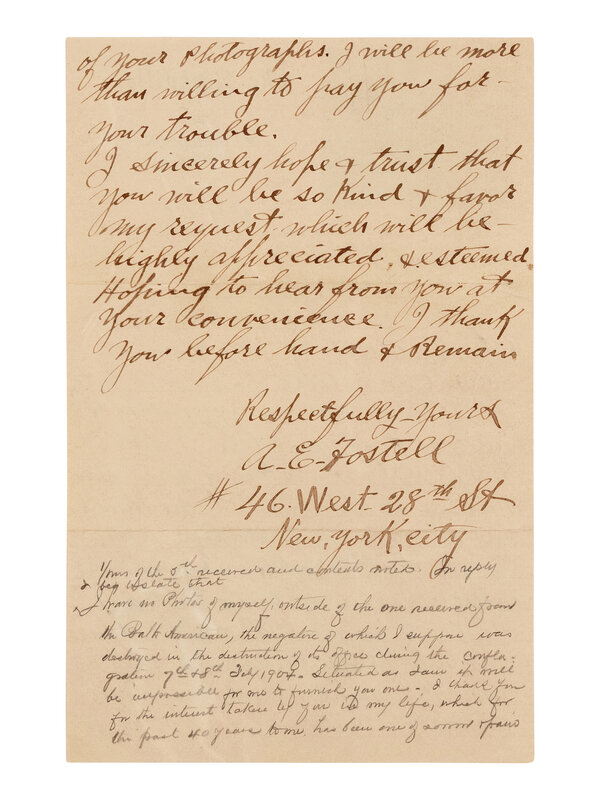 of your photographs. I will be more
than willing to pay you for
your trouble.
I sincerely hope & trust that
you will be so kind & favor
my request which will be
highly appreciated & esteemed.
Hoping to hear from you at
your convenience. I thank
you before hand & Remain
Respectfully Yours
A-E-Fostell
# 46. West 28th St
New, York, city
Yours of the 5th received and contents noted. In reply
& beg to state that
I have no Photos of myself, outside of the one received from
the Balt American, the negative of which I suppose was
destroyed in the destruction of its office during the confla-
gration 7th & 8th July 1904. Situated as I am it will
be impossible for me to furnish you one. I thank you
for the interest taken by you in my life, which for
the past 40 years to me, has been one of sorrow & pains